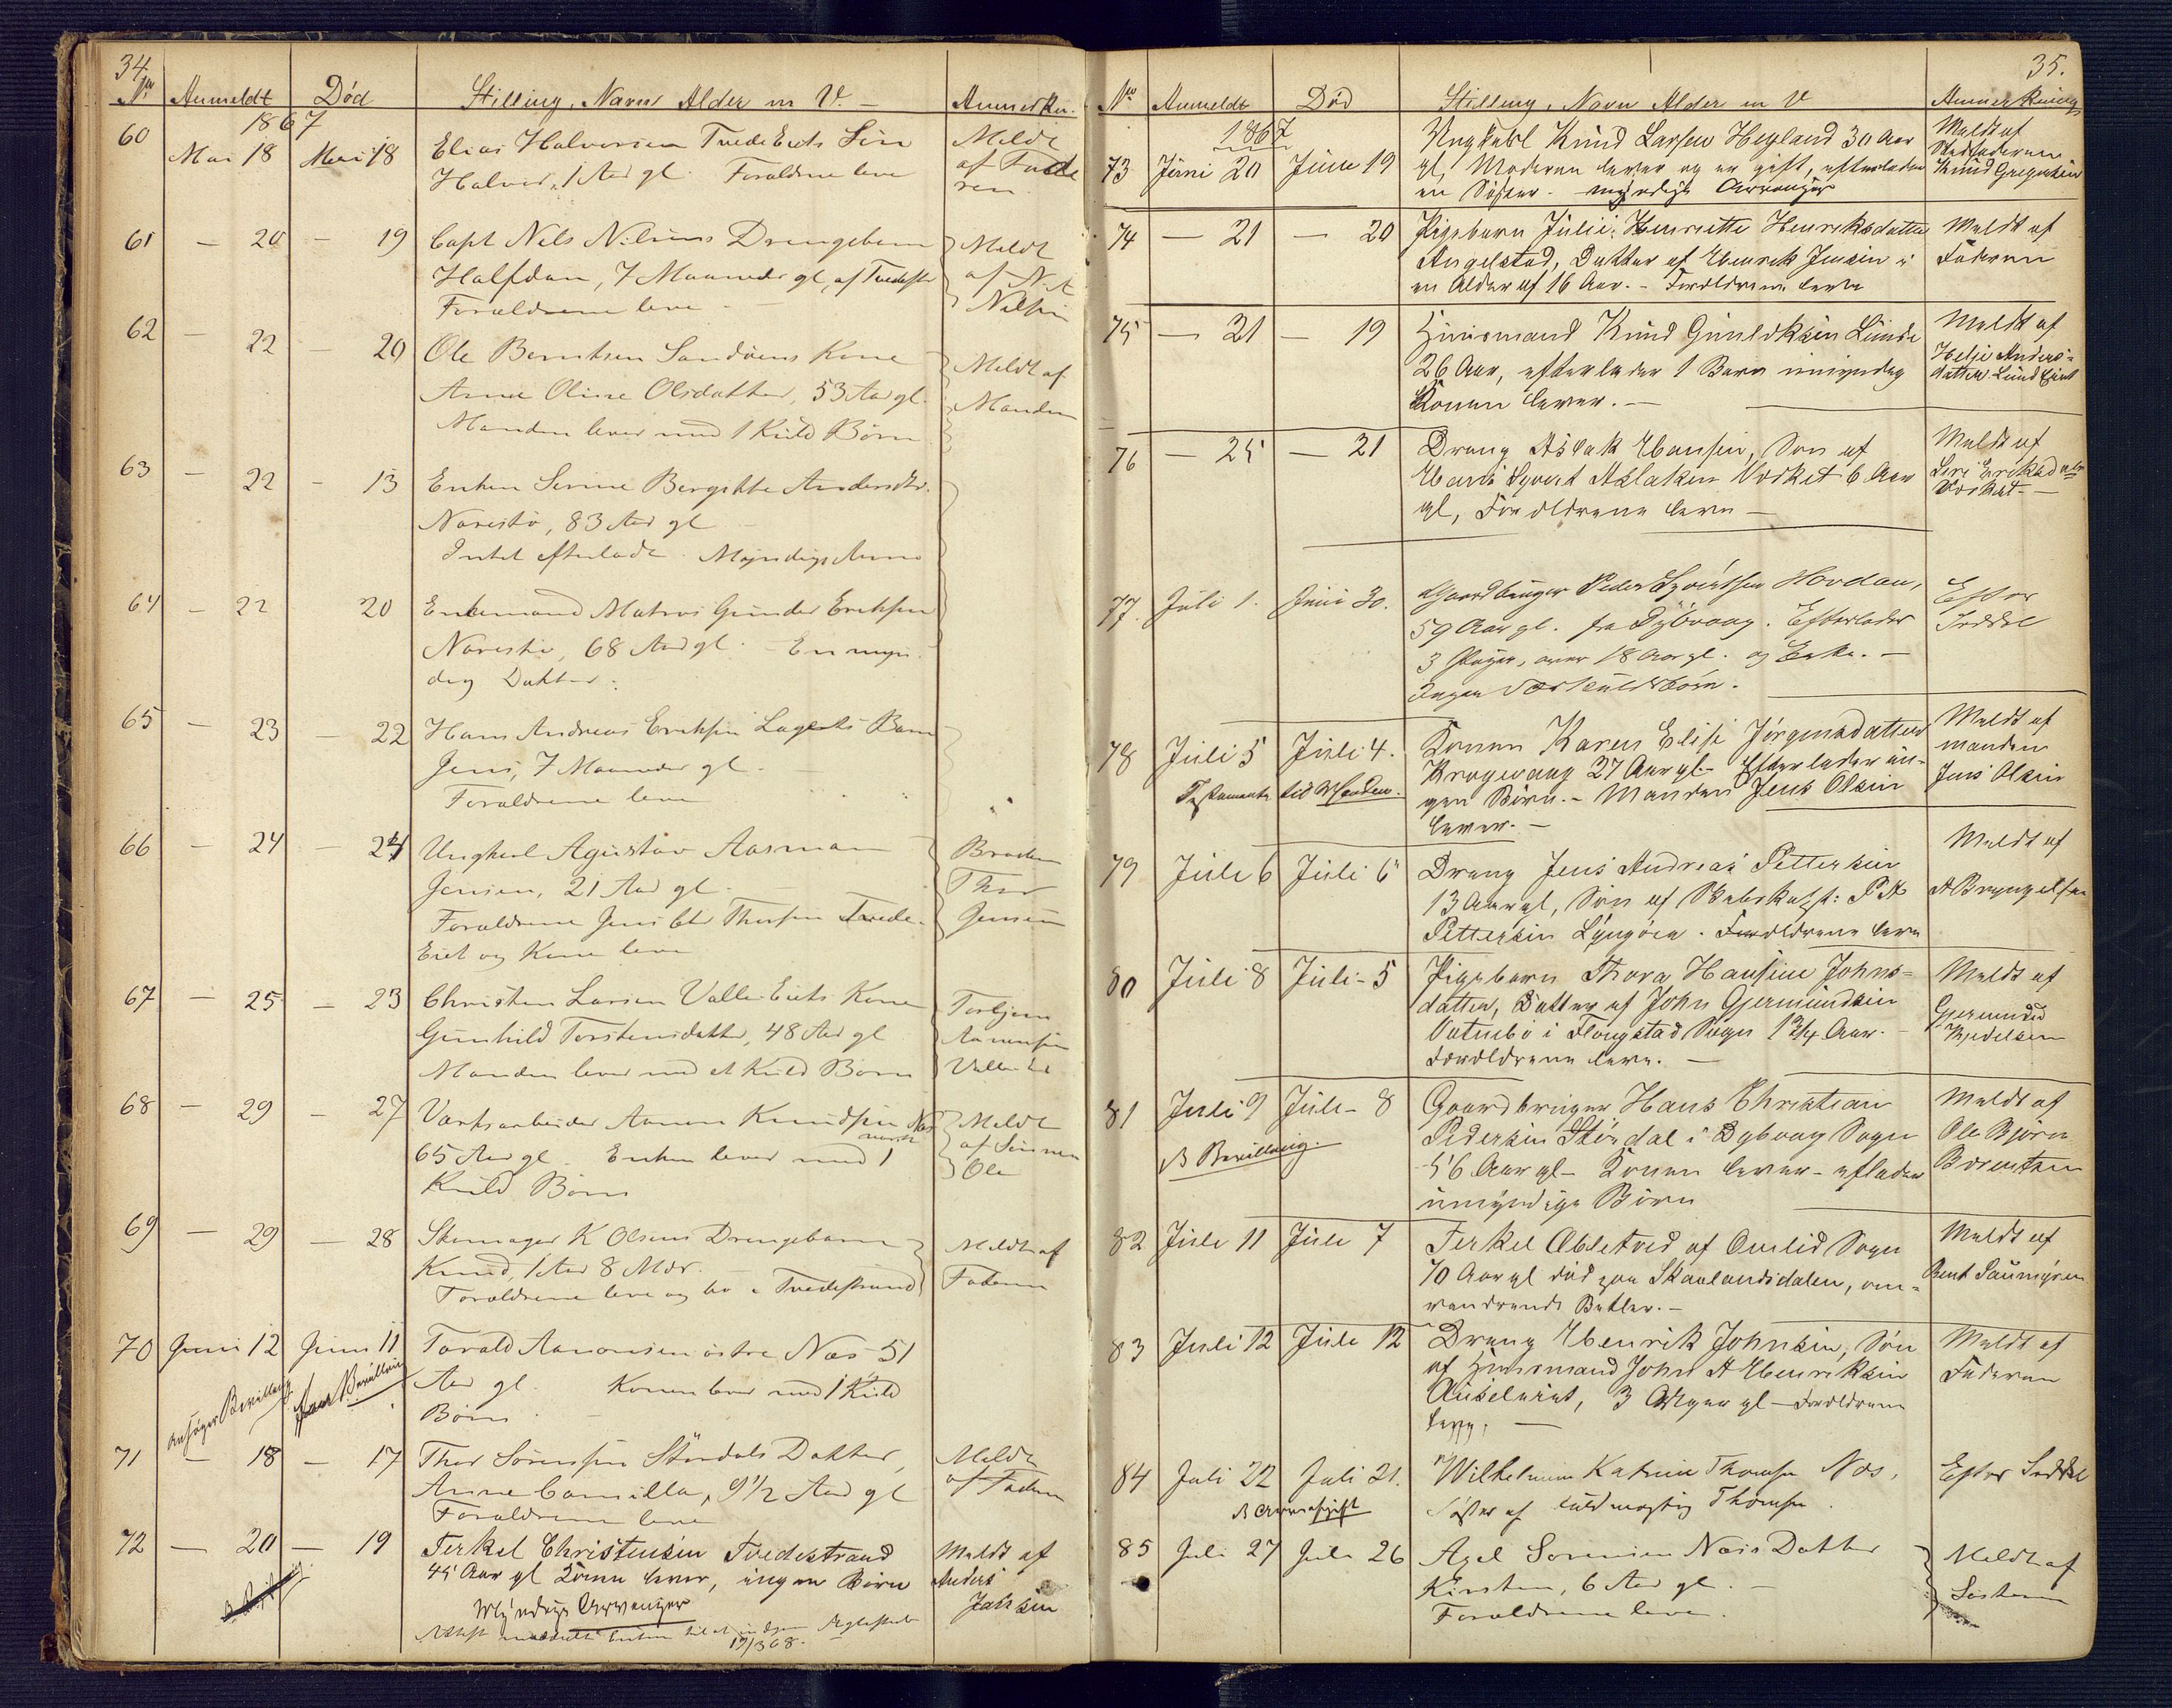 34.
No Anmeldt Død Stilling, Navn Alder m V. Anmerkn.
1867
60 Mai 18 Mai 18 Elias Halvorsen Tvede Eiets Søn Meldt
Halvor, 1 Aar gl. Forældrene leve af Fade
ren
61 — 20 — 19 Capt Nels Nilsens Drengebarn Meldt
Halfdan, 7 Maaneder gl, af Tvedestr af N. A
Forældrene leve Nilsen
62 — 22 — 20 Ole Berntsen Sandøens Kone Meldt af
Anne Oline Olsdatter, 53 Aar gl. Manden
Manden lever med 1 Kuld Børn
63 — 22 — 13 Enken Serine Bergitte Andersdr.
Narestø, 83 Aar gl
Intet efterladt. Myndige Arve
64 — 22 20 Enkemand Matros Gunder Eriksen
Narestø, 68 Aar gl. En myn
dig Datter.
65 — 23 — 22 Hans Andreas Eriksen Lagests Barn
Jens, 7 Maaneder gl.
Forældrene leve
66 — 24 — 24 Ungkarl Agustav Aasman Broderen
Jensen, 21 Aar gl. Thor
Forældrene Jens Chr Thorsen Tvede Jensen
Eiet og Kone leve
67 — 25 — 23 Christen Larsen Valle Eiets Kone Torbjørn
Gunhild Torstensdatter, 48 Aar gl Aanensen
Manden lever med et Kuld Børn Valle
68 — 29 — 27 Værksarbeider Aanen Knudsen Næs Meldt
verk af Sønnen
65 Aar gl. Enken lever med 1 Ole
Kuld Børn
69 — 29 — 28 Skomager K Olsens Drengebarn Meldt af
Knud, 1 Aar 8 Mdr. Faderen
Forældrene leve og bo i Tvedestrand
70 Juni 12 Juni 11 Torald Aanonsen østre Næs 51
Aar gl. Konen lever med 1 Kuld
Børn
ansøger Bevilling faaet Bevilling
71 — 18 — 17 Thor Sørensen Størdals Datter, Meldt
Anne Camilla, 9½ Aar gl af Faderen
Forældrene leve
72 — 20 — 19 Terkel Christensen Tvedestrand Meldt af
45 Aar gl Konen lever, ingen Børn Anders
Myndige Arvinger Jansen
Attest meddelt Enken til at
19/3 68.
35.
No Anmeldt Død Stilling, Navn Alder m V Anmerkning
1867
73 Juni 20 Juni 19 Ungkarl Knud Larsen Hegland 30 Aar Meldt af
gl, Moderen lever og er gift, efterlader Stedfaderen
en Søster. myndige Arvinger Knud Gregersen
74 — 21 — 20 Pigebarn Julie Henriette Henriksdatter Meldt af
Angelstad, Datter af Henrik Jensen i Faderen
en Alder af 16 Aar. - Forældrene leve
75 — 21 — 19 Huusmand Knud Gunleksen Lunde Meldt af
26 Aar, efterlader 1 Barn umyndig Helje Anders-
Konen lever. — datter Lund Eiet
76 — 25 — 21 Dreng Aslak Hansen, Søn af Meldt af
Hans Syvert Aslaksen Vosket 6 Aar Siri Eriksdatter
gl, Forældrene leve — Vosket —
77. Juli 1. Juni 30. Gaardbruger Peder Syvertsen Hovdan, Efter
59 Aar gl. fra Dybvaag. Efterlader Seddel
3 Piger, over 18 Aar gl. og Enke. —
Ingen Særkuldsbørn.
78 Juli 5 Juli 4. Konen Karen Elise Jørgensdatter Meldt af
Krogevaag 27 Aar gl. Efterlader in- manden
gen Børn. - Manden Jens Olsen Jens Olsen
lever. —
Testamente til Manden.
79 Juli 6 Juli 6 Dreng Jens Andreas Pettersen Meldt af
13 Aar gl, Søn af Skibskapt: P A A Bryngelsen
Pettersen Lyngøen. Forældrene leve
80 Juli 8 Juli - 5 Pigebarn Thora Hansine Johns- Meldt af
datter, Datter af John Gjermundsen Gjermund
Vatnebø i Flougstad Sogn 1¾ Aar. Kjedelsen
Forældrene leve. —
81 Juli 9 Juli - 8 Gaardbruger Hans Christian Meldt af
Pedersen Størdal i Dybvaag Sogn Ole Bjørn
56 Aar gl - Konen lever - eflader Berentsen
umyndige Børn
B Bevilling.
82 Juli 11 Juli 7 Terkel Ableitved af Omlid Sogn Meldt af
70 Aar gl død paa Skaalandsdalen, om- Bent Saumyren
vandrende Betler. —
83 Juli 12 Juli 12 Dreng Henrik Johnsen, Søn Meldt af
af Huusmand John A Henriksen Faderen
Auseleiet, 3 Uger gl — Forældrene
leve, —
84 Juli 22 Juli 21. Wilhelmine Katrine Thomsen Næs, Efter Seddel
Søster af fuldmægtig Thomsen.
B Arveafgift
85 Juli 27 Juli 26 Axel Sørensen Næs Datter Meldt af
Kirsten, 6 Aar gl. — Søsteren
Forældrene leve.